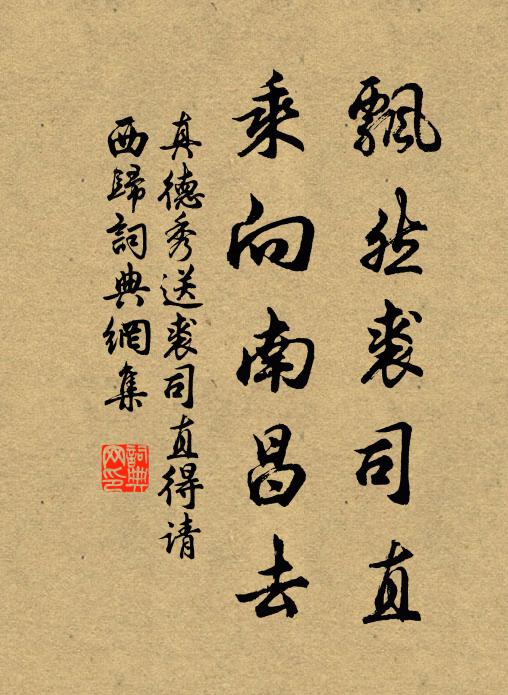 飄然裘司直
乘向南昌去
真德秀送裘司直得请
西歸詞典網集
詞典
网印